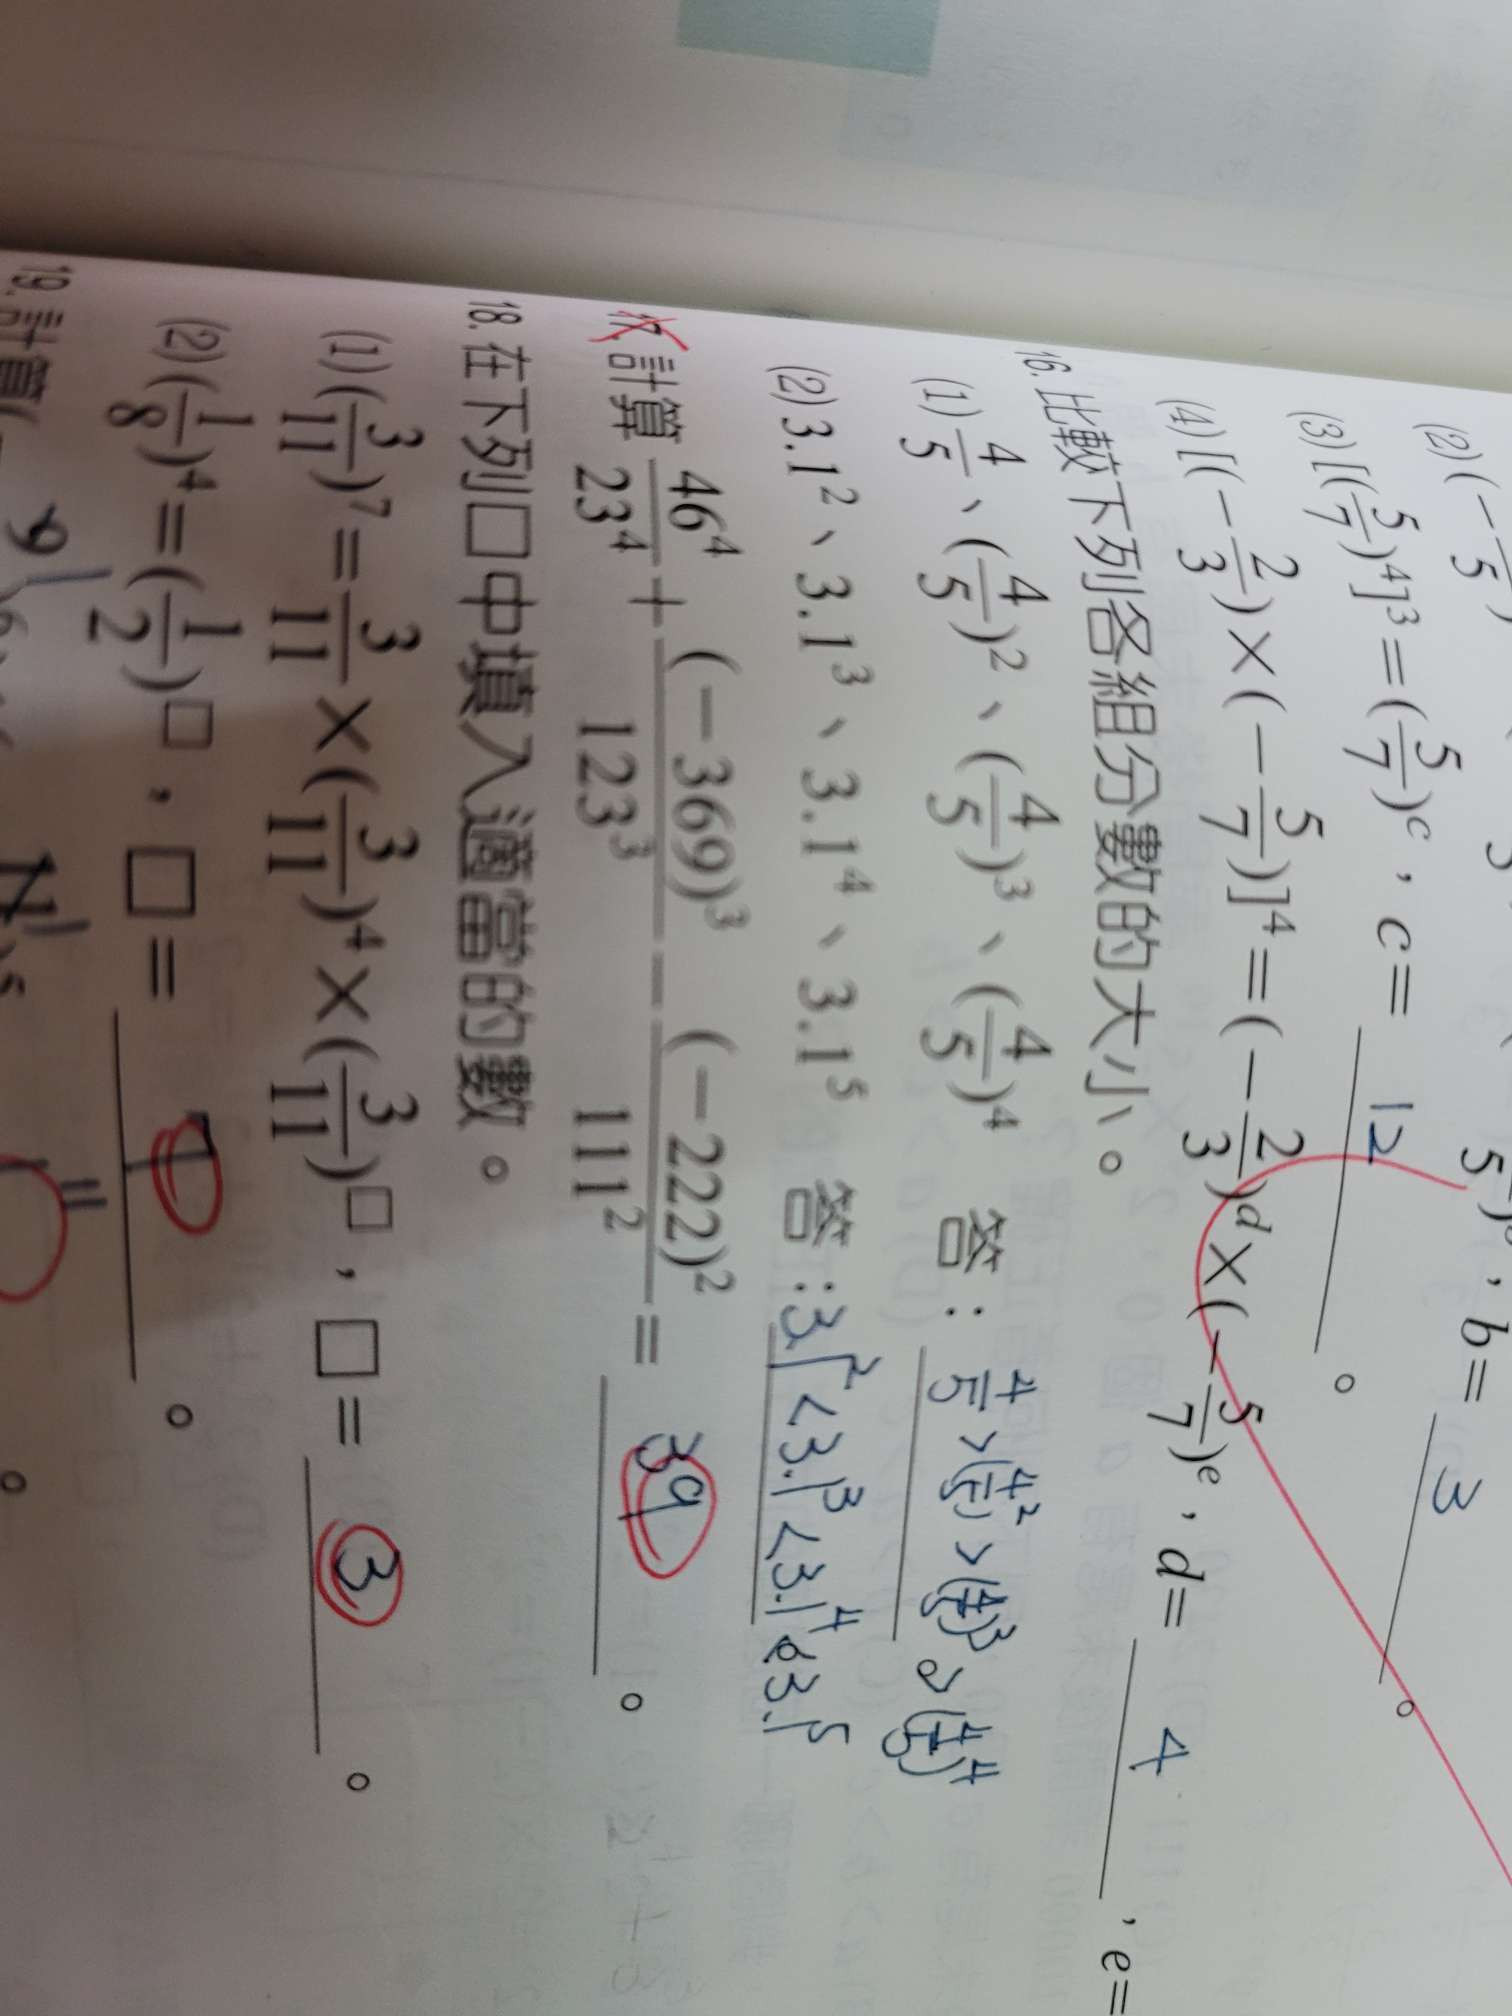 (2)(-—/5)
5)
, b= 3 。
(3)[(5/7)⁴]³=(5/7)ᶜ,c= 12 。
(4)[(-2/3)×(-5/7)]⁴=(-2/3)ᵈ×(-5/7)ᵉ,d= 4 ,e=
16.比較下列各組分數的大小。
(1)4/5、(4/5)²、(4/5)³、(4/5)⁴ 答:4/5>(4/5)²>(4/5)³>(4/5)⁴
(2)3.1²、3.1³、3.1⁴、3.1⁵ 答:3.1²<3.1³<3.1⁴<3.1⁵
17.計算46⁴/23⁴+(-369)³/123³-(-222)²/111²= 39 。
18.在下列□中填入適當的數。
(1)(3/11)⁷=3/11×(3/11)⁴×(3/11)□,□= 3 。
(2)(1/8)⁴=(1/2)□,□= 7 。
19.計算(